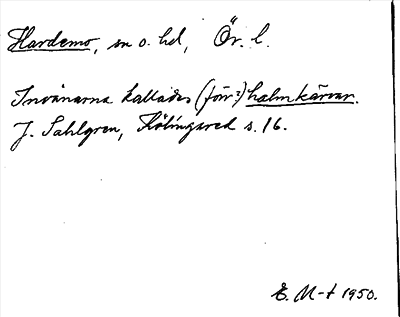 Hardemo, sn o. hd, Ör. l.
Invånarna kallades (förr?) halmkärvar.
J. Sahlgren, Kölingared s. 16.
E. M-t 1950.